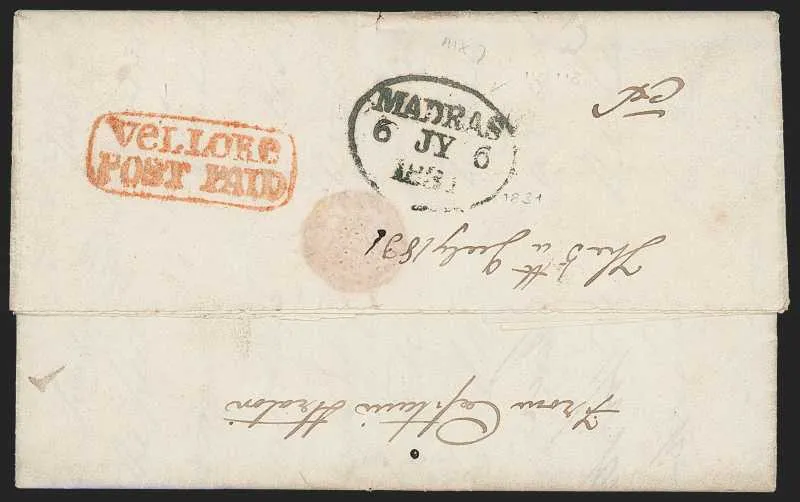 VeLLORe
POST PAID
MADRAS
6 JY 6
1831
1831
The 5th July 1831
From Captain